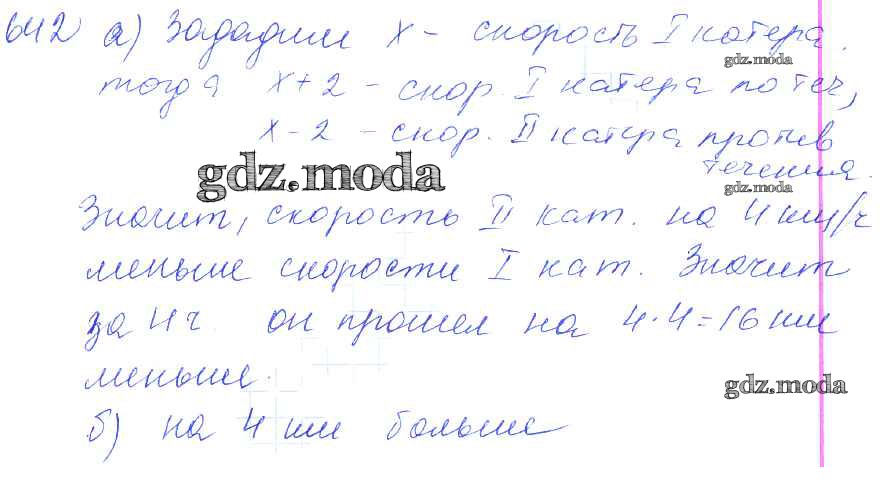 642 а) Зададим x - скорость I катера.
gdz.moda
тогда x+2 - скор. I катера по теч,
x-2 - скор. II катера против
течения.
gdz.moda
gdz.moda
Значит, скорость II кат. на 4 км/ч
меньше скорости I кат. Значит
за 4ч. он прошел на 4·4=16 км
меньше.
gdz.moda
б) на 4 км больше